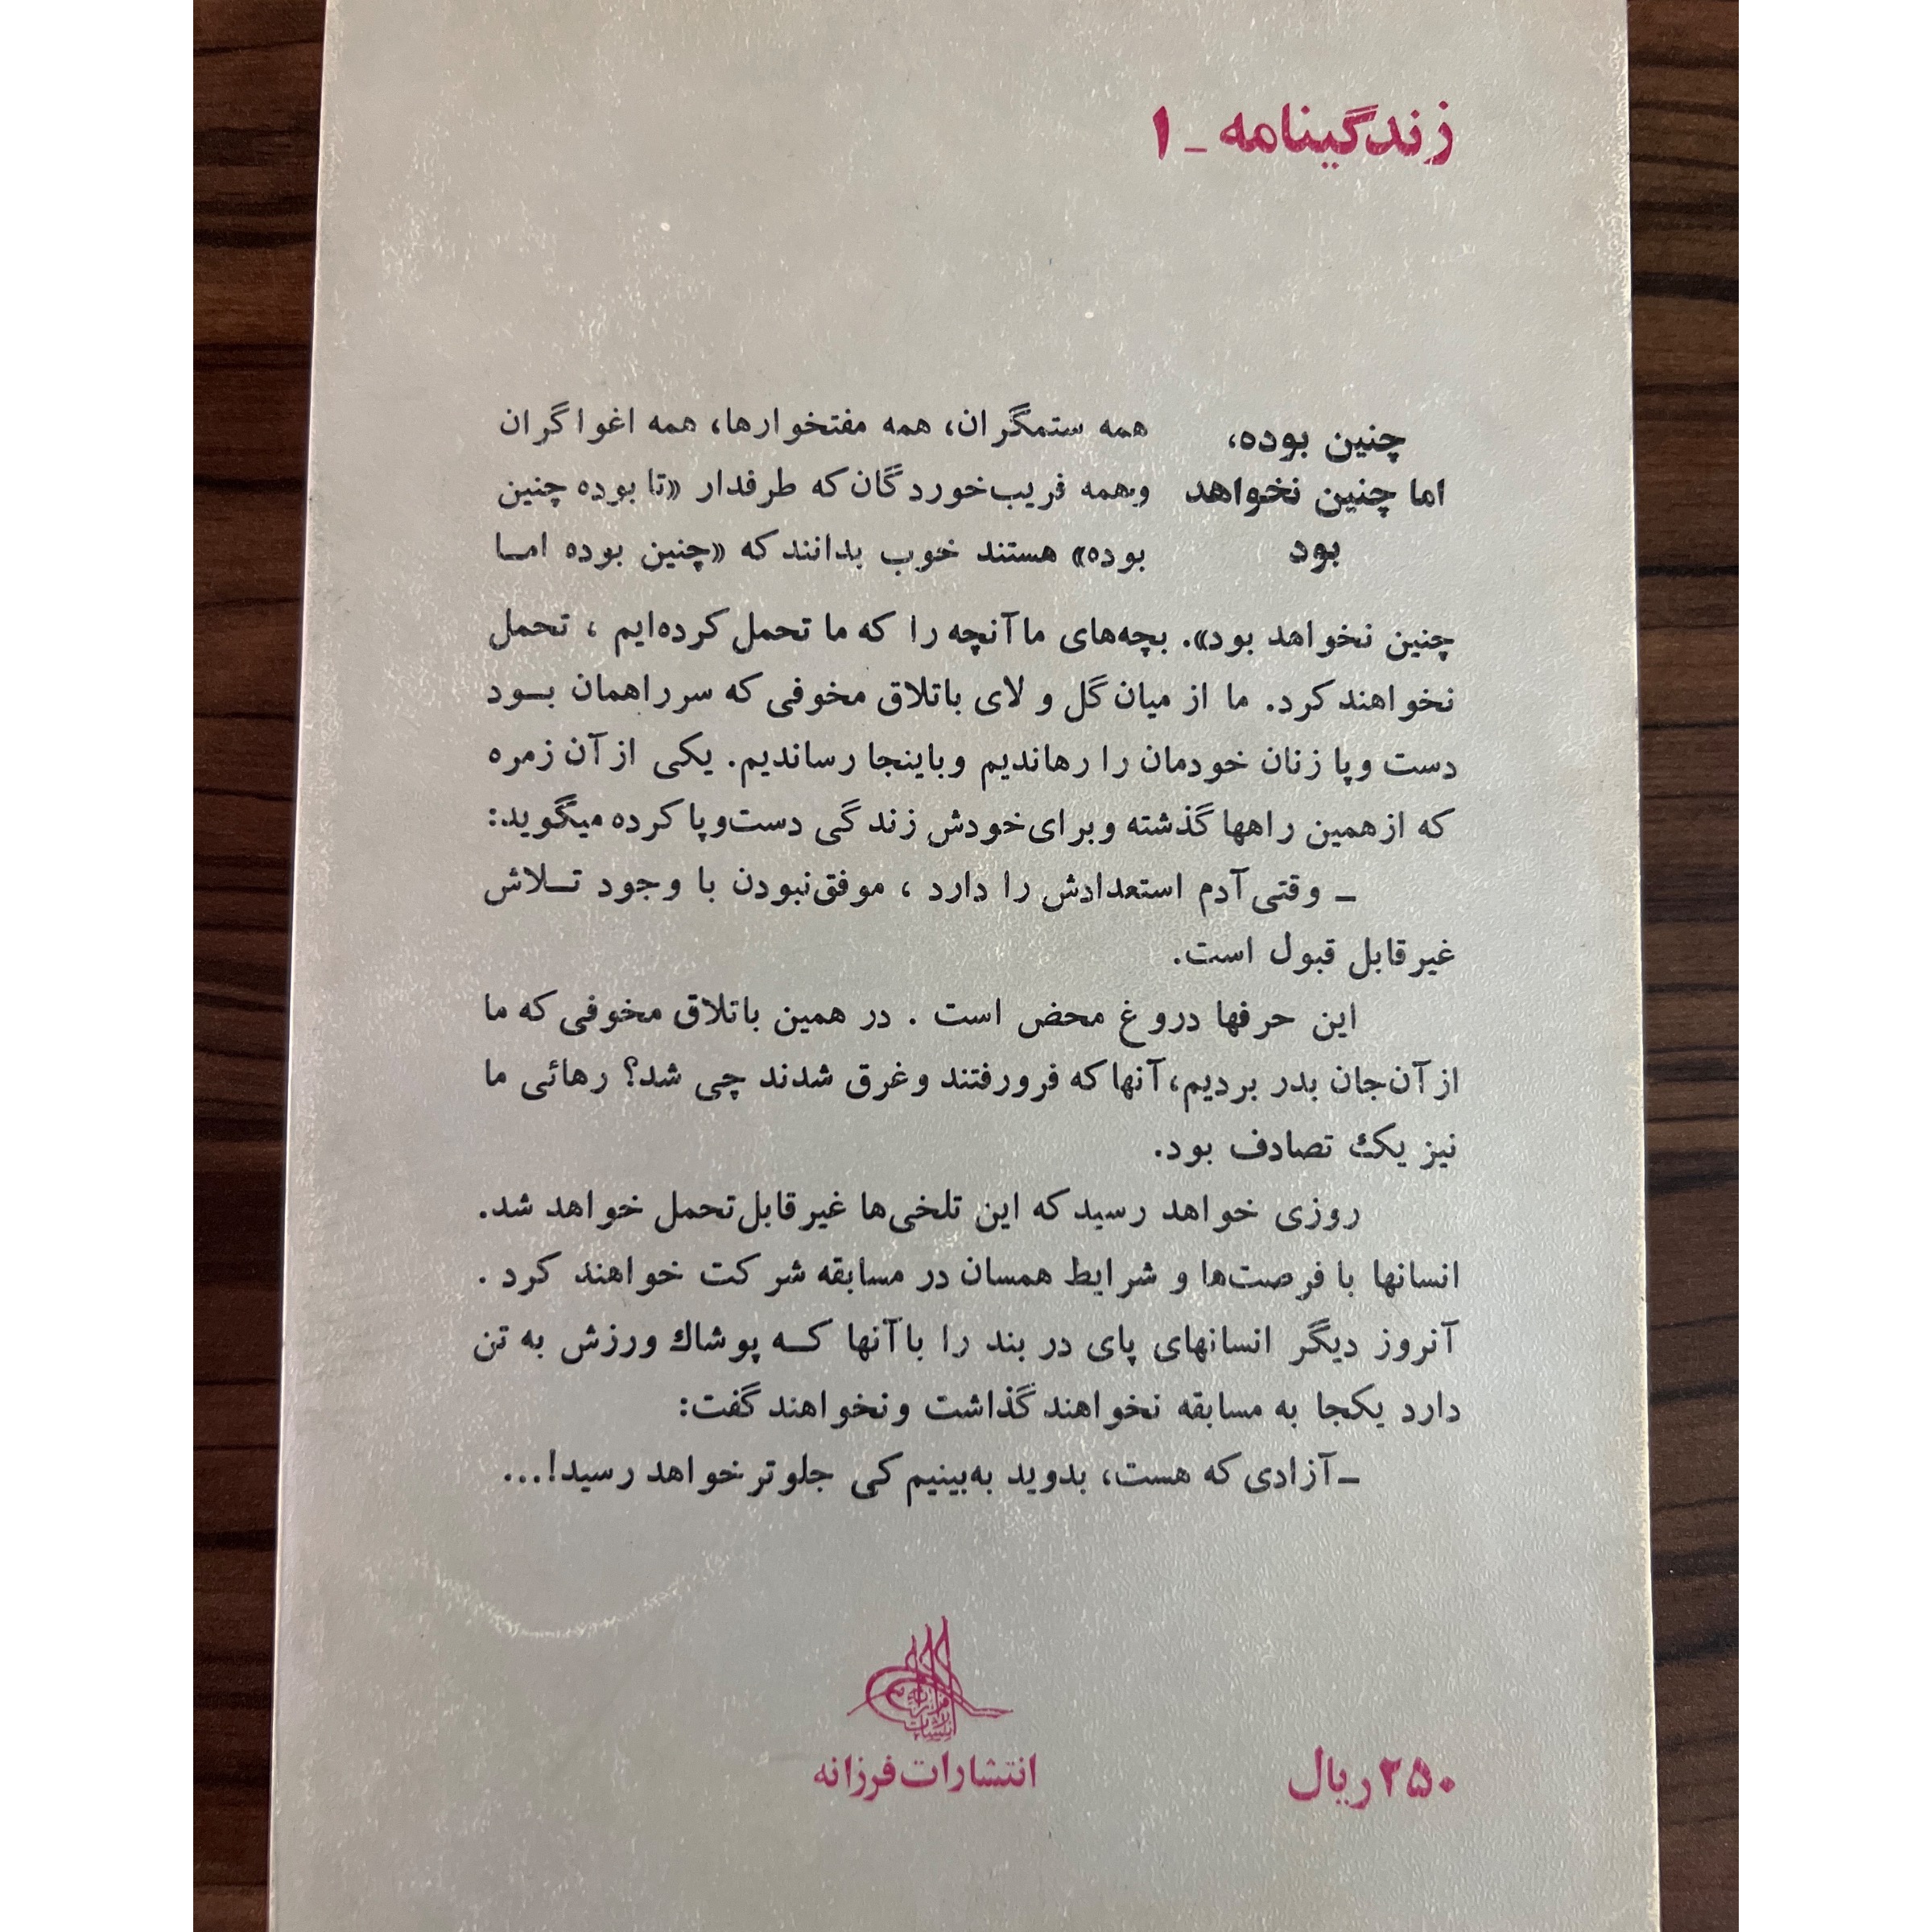 زندگینامه - ۱
چنین بوده،
اما چنین نخواهد
بود
همه ستمگران، همه مفتخوارها، همه اغواگران
وهمه فریب‌خوردگان که طرفدار «تا بوده چنین
بوده» هستند خوب بدانند که «چنین بوده امـا
چنین نخواهد بود». بچه‌های ما آنچه را که ما تحمل کرده‌ایم ، تحمل
نخواهند کرد. ما از میان گل و لای باتلاق مخوفی که سر راهمان بـود
دست وپا زنان خودمان را رهاندیم و باینجا رساندیم. یکی از آن زمره
که از همین راهها گذشته و برای خودش زندگی دست‌وپا کرده میگوید:
ـ وقتی آدم استعدادش را دارد ، موفق‌نبودن با وجود تـلاش
غیرقابل قبول است.
این حرفها دروغ محض است . در همین باتلاق مخوفی که ما
از آن جان بدر بردیم، آنها که فرورفتند وغرق شدند چی شد؟ رهائی ما
نیز یک تصادف بود.
روزی خواهد رسید که این تلخی‌ها غیرقابل‌تحمل خواهد شد.
انسانها با فرصت‌ها و شرایط همسان در مسابقه شرکت خواهند کرد .
آنروز دیگر انسانهای پای در بند را با آنها کـه پوشاك ورزش به تن
دارد یکجا به مسابقه نخواهند گذاشت و نخواهند گفت:
ـ آزادی که هست، بدوید به‌بینیم کی جلوتر خواهد رسید!...
انتشارات فرزانه
۲۵۰ ریال